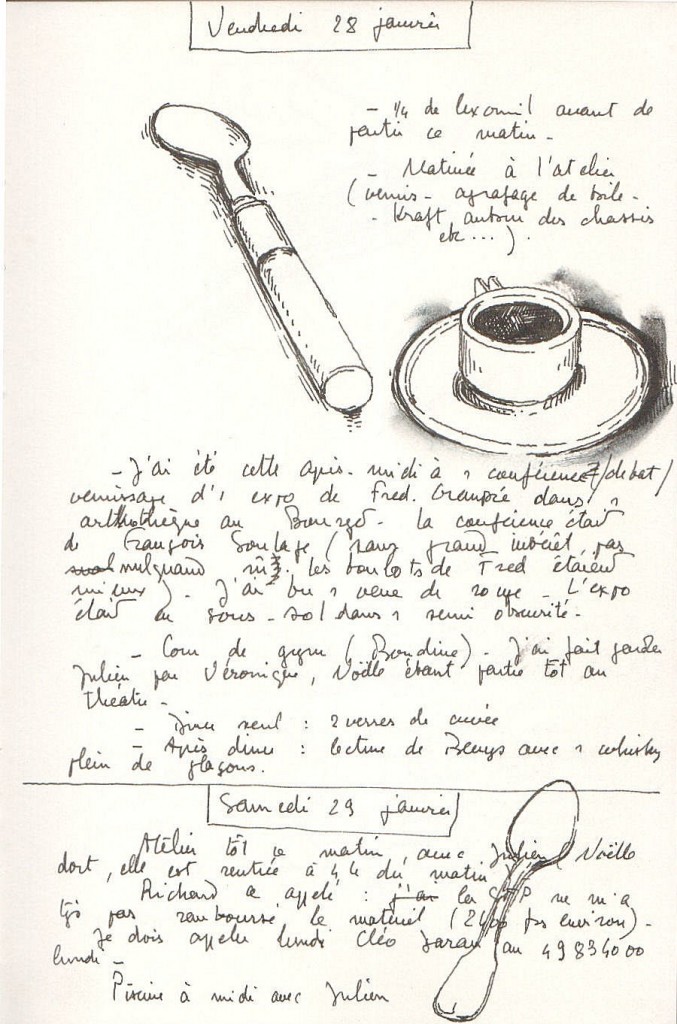 Vendredi 28 janvier
- 1/4 de lexomil avant de
partir ce matin -
- Matinée à l'atelier
(vernis - agrafage de toile -
- Kraft autour des chassis
etc...).
- J'ai été cette après-midi à 1 conférence/débat/
vernissage d'1 expo de Fred. dans 1
arthothèque au Bourget - la conférence était
de François Soulage (sans grand intérêt, pas
mul quand m̂. les boulots de Fred étaient
mieux) - J'ai bu 1 verre de rouge - L'expo
était en sous-sol dans 1 semi obscurité -
- Cour de gym (Blandine) - J'ai fait garder
Julien par Véronique, Noëlle étant partie tôt au
théâtre -
- Diner seul : 2 verres de cuvée
- Après diner : lecture de Beuys avec 1 whisky
plein de glaçons.
Samedi 29 janvier
Atelier tôt ce matin, avec Julien (Noëlle
dort, elle est rentrée à 4h du matin
Richard a appelé : j'ai la ne m'a
tjs pas remboursé le matériel (2400 frs environ) -
Je dois appeler lundi Cléo au 49834000
lundi -
Piscine à midi avec Julien